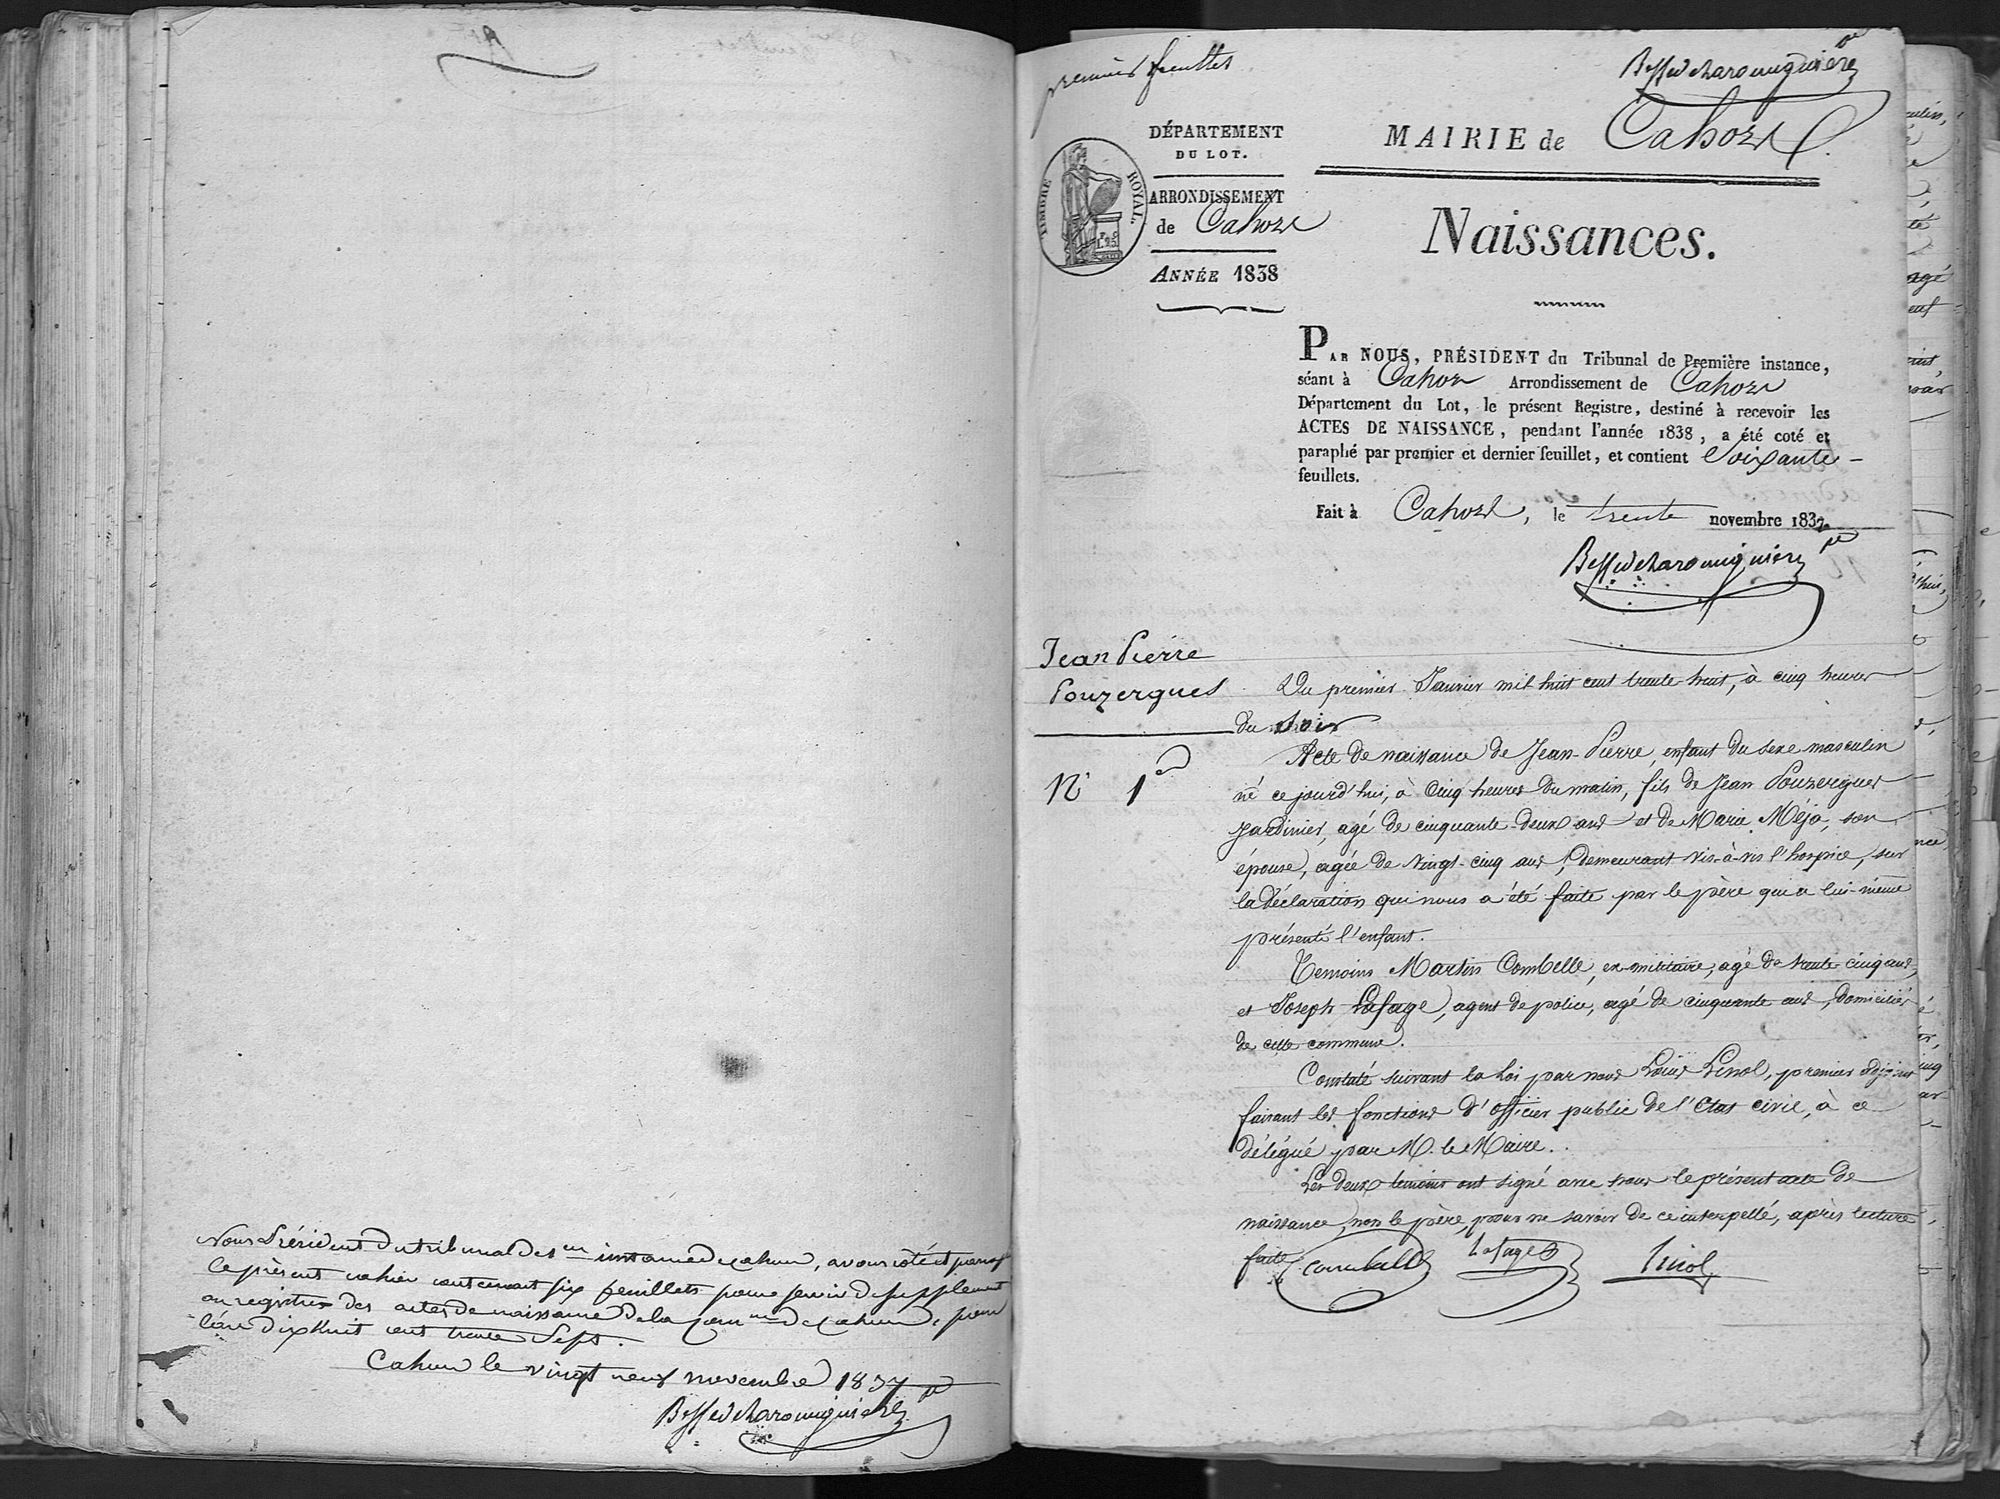 Nous Président du tribunal de 1ere instance de Cahors, avons coté et paraphé
le présent cahier contenant six feuillets pour servir de supplement
au registre des actes de naissance de la Comune de Cahors, pour
l'an dix huit cent trente Sept.
Cahors le vingt neuf novembre 1837
premier feuillet
DÉPARTEMENT
DU LOT.
ARRONDISSEMENT
de Cahors
ANNÉE 1838
TIMBRE ROYAL
MAIRIE de Cahors
Naissances.
PAR NOUS, PRÉSIDENT du Tribunal de Première instance,
séant à Cahors Arrondissement de Cahors
Département du Lot, le présent Registre, destiné à recevoir les
ACTES DE NAISSANCE, pendant l'année 1838, a été coté et
paraphé par premier et dernier feuillet, et contient Soixante-
feuillets.
Fait à Cahors, le trente novembre 1837
Jean Pierre
Pouzergues
N° 1er
Du premier Janvier mil huit cent trente-huit, à cinq heures
du Soir
Acte de naissance de Jean-Pierre, enfant du sexe masculin
né ce jourd'hui, à Cinq heures du matin, fils de Jean Pouzergues
jardinier, agé de cinquante-deux ans et de Marie Méjo, son
épouse, agée de vingt-cinq ans, demeurant vis-à-vis l'hospice, sur
la déclaration qui nous a été faite par le père qui a lui-même
présenté l'enfant.
Temoins Martin Combelle, ex-militaire, agé de trente cinq ans,
et Joseph Lafage, agent de police, agé de cinquante ans, domiciliés
de cette commune.
Constaté suivant la loi par nous Louis Linol, premier adjoint
faisant les fonctions d'officier public de l'Etat civil, à ce
délégué par M. le Maire.
Les deux temoins ont signé avec nous le présent acte de
naissance, non le père, pour ne savoir de ce interpellé, après lecture
faite Combelle Lafage Linol